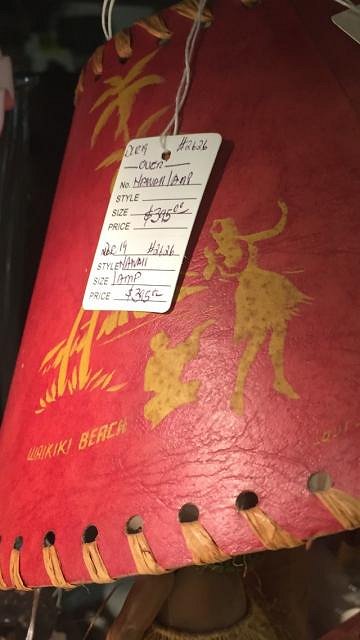 DLR 19 #2626
OVER
No. HAWAII LAMP
STYLE
SIZE $395.00
PRICE
DLR 19 #2626
STYLE HAWAII
SIZE LAMP
PRICE $395.00
WAIKIKI BEACH